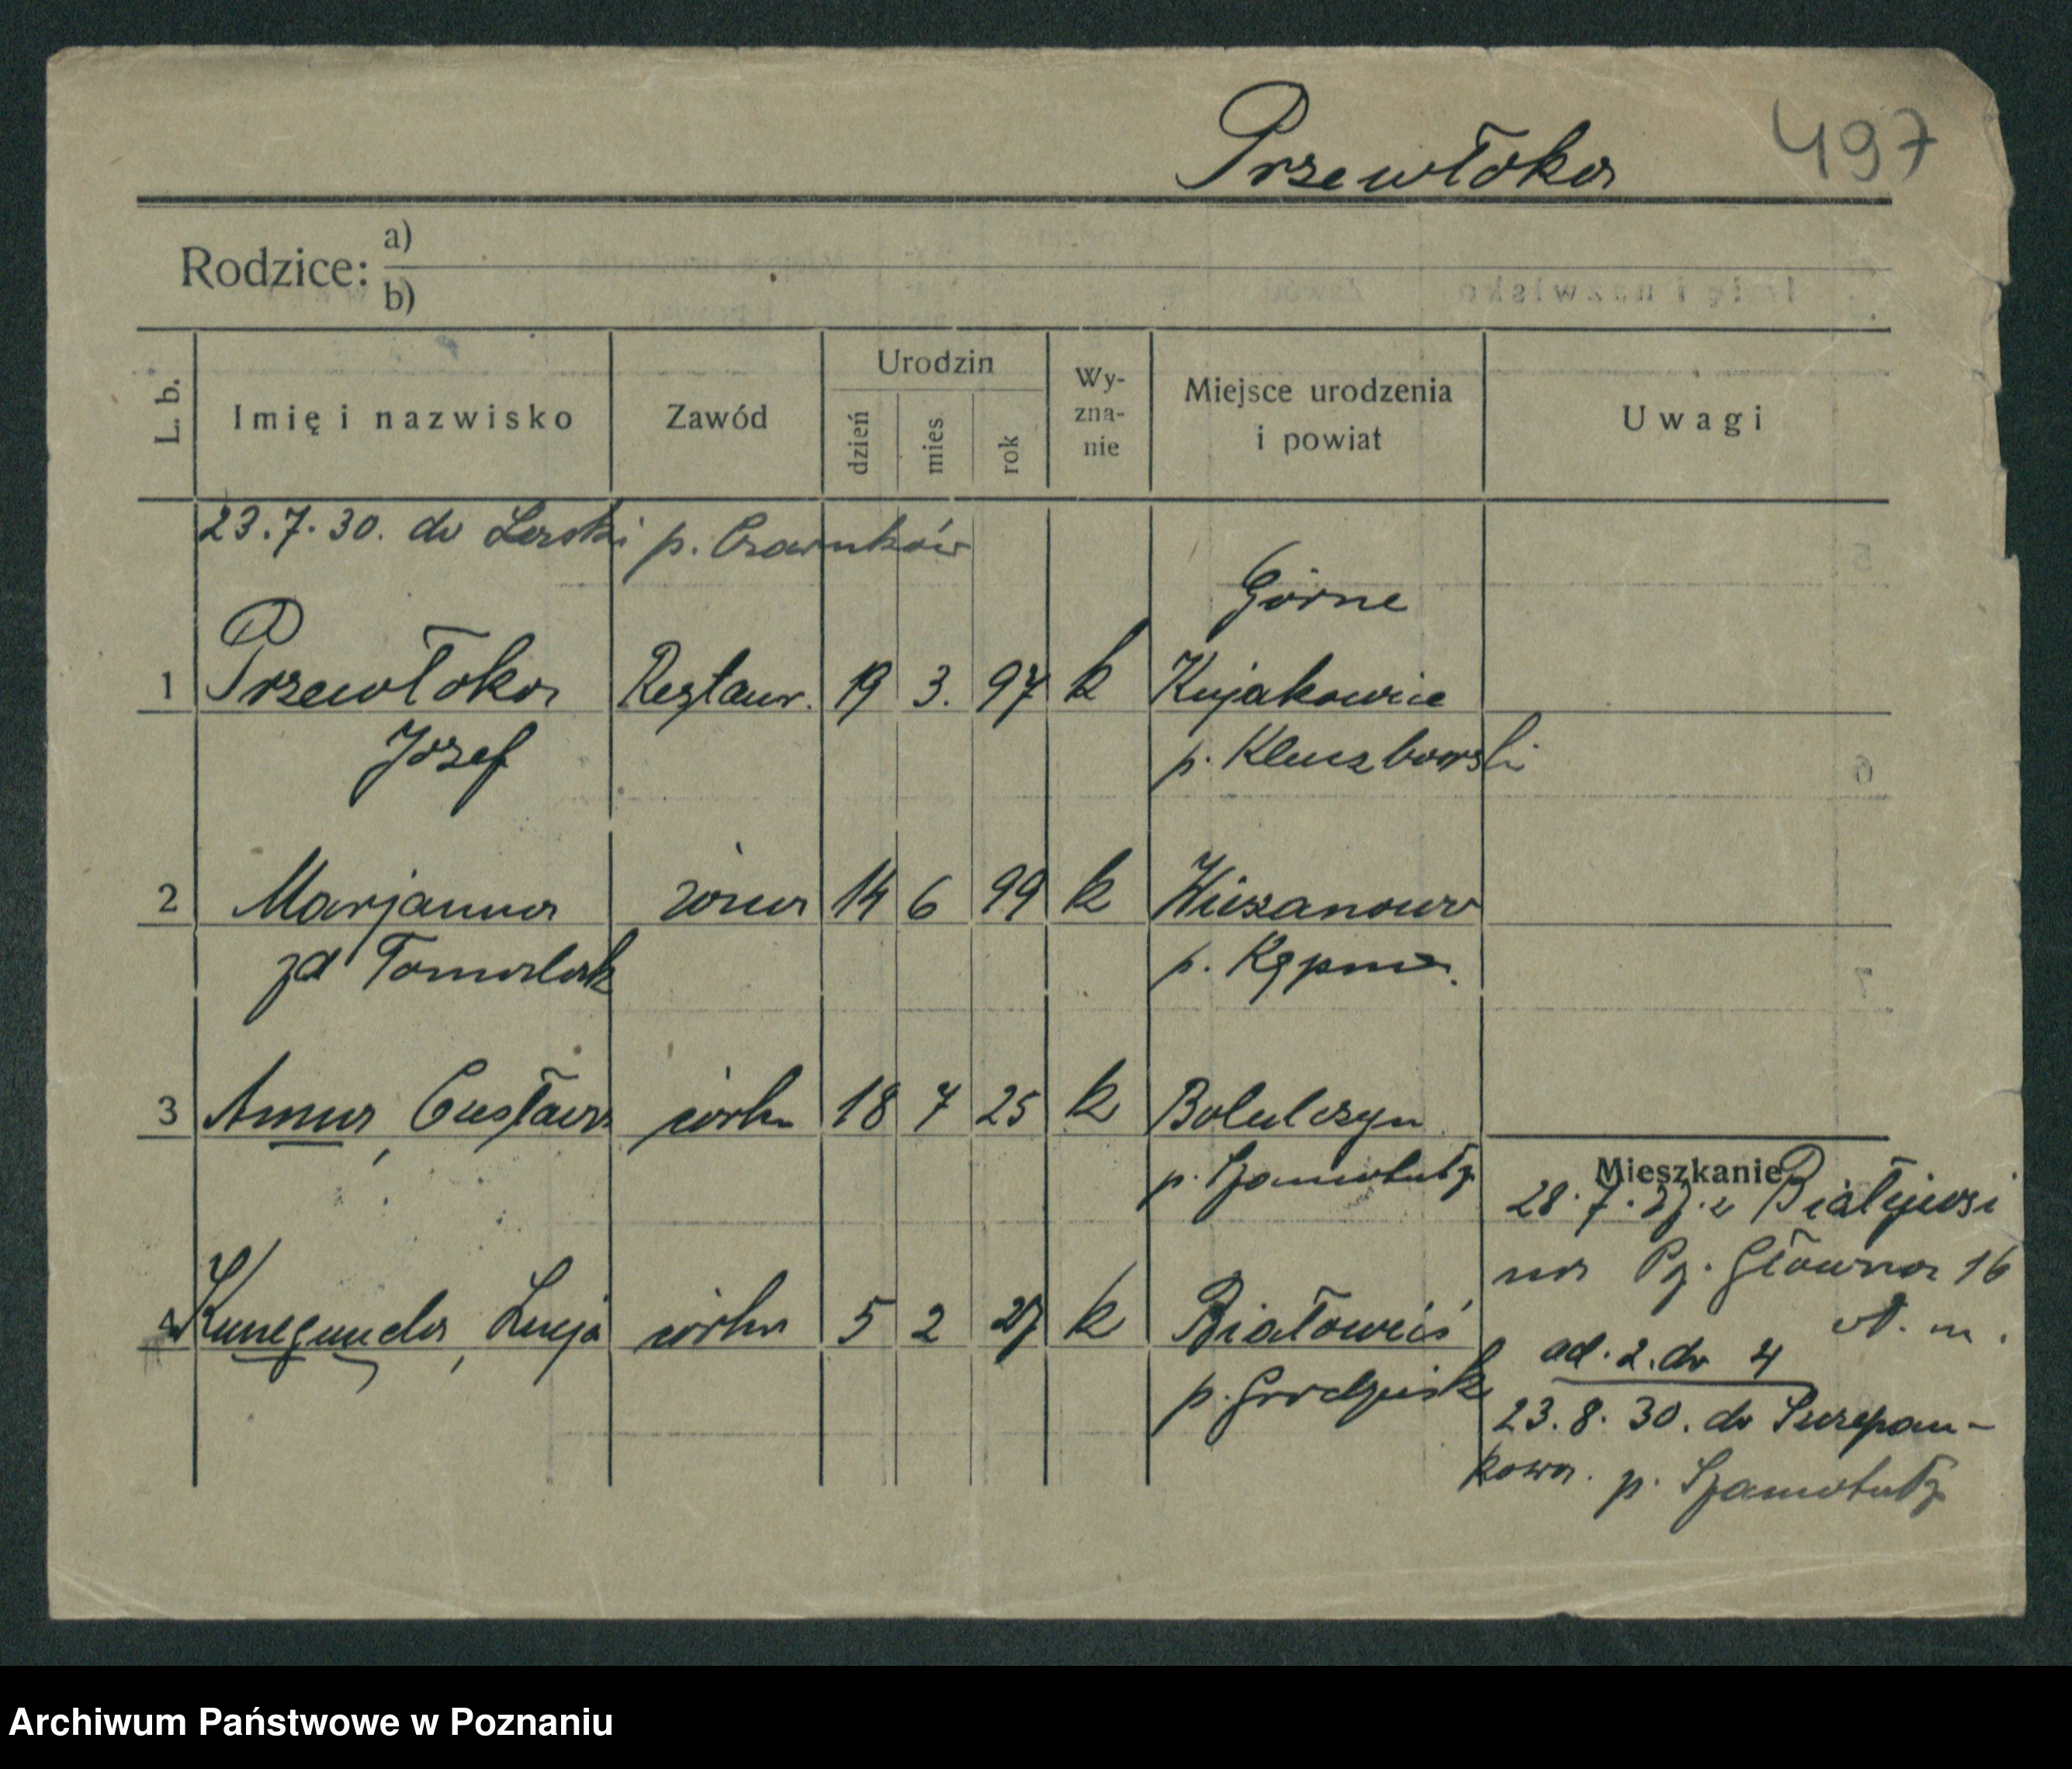 Przewłoka 497
Rodzice: a)
b)
L. b. Imię i nazwisko Zawód Urodzin dzień mies rok Wy-zna-nie Miejsce urodzenia i powiat Uwagi
23.7.30. do p. Czarnków
Górne
1 Przewłoka Restaur. 19 3. 97 k Kujakowice
Józef p. Kluczborski
2 Marjanna żona 14 6 99 k
zd Tomalak p. Kępno.
3 Anna, Gustawa córka 18 7 25 k
p. Szamotuły
4 Kunegunda, Lucja córka 5 2 27 k Białowieś
p. Grodzisk
Mieszkanie
28.7. z Białejwsi
na Główna 16
m.
ad. 2. do 4
23.8.30. do Szczepan-
kowa. p. Szamotuły
Archiwum Państwowe w Poznaniu